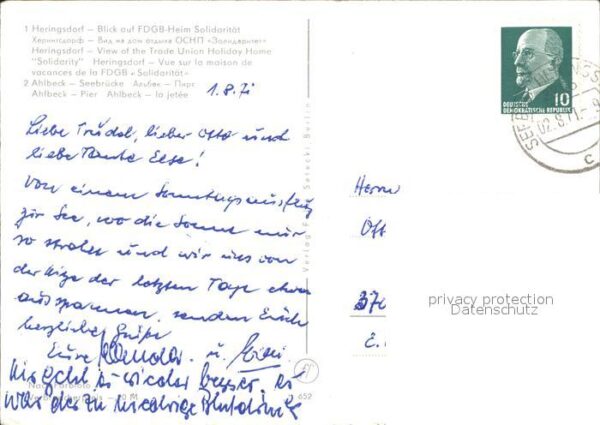 1 Heringsdorf — Blick auf FDGB-Heim Solidarität
Херингсдорф — Вид на дом отдыха ОСНП «Золидаритет»
Heringsdorf — View of the Trade Union Holiday Home
"Solidarity" Heringsdorf — Vue sur la maison de
vacances de la FDGB «Solidarität»
2 Ahlbeck — Seebrücke Альбек — Пирс
Ahlbeck — Pier Ahlbeck — la jetée
1.8.71
Liebe Trudel, lieber Otto und
liebe Tante Else!
Von einem Sonntagsausflug
zur See, wo die Sonne nur
so strahlt und wir uns von
der Hitze der letzten Tage etwas
ausspannen, senden Euch
herzliche Grüße
Eure u.
Mir geht es wieder besser. Es
war der zu niedrige Blutdruck
652
Verlag Berlin
10
DEUTSCHE
DEMOKRATISCHE REPUBLIK
02.8.71.-9
c
Herrn
Ott
370
E.
privacy protection
Datenschutz